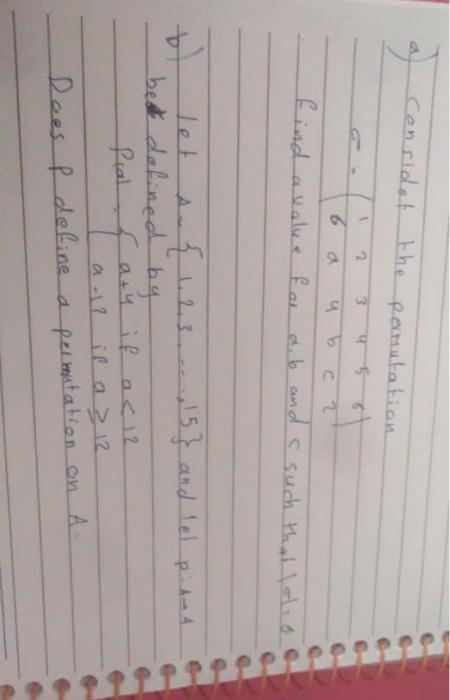 a) Consider the permutation
σ = ( 1 2 3 4 5 6
6 a 4 b c 2 )
find a value for a, b and c such that |σ| = 6
b) let A = { 1, 2, 3, ---, 15 } and let p: A → A
be defined by
P(a) = { a+4 if a < 12
a-12 if a ≥ 12
Does p define a permutation on A.